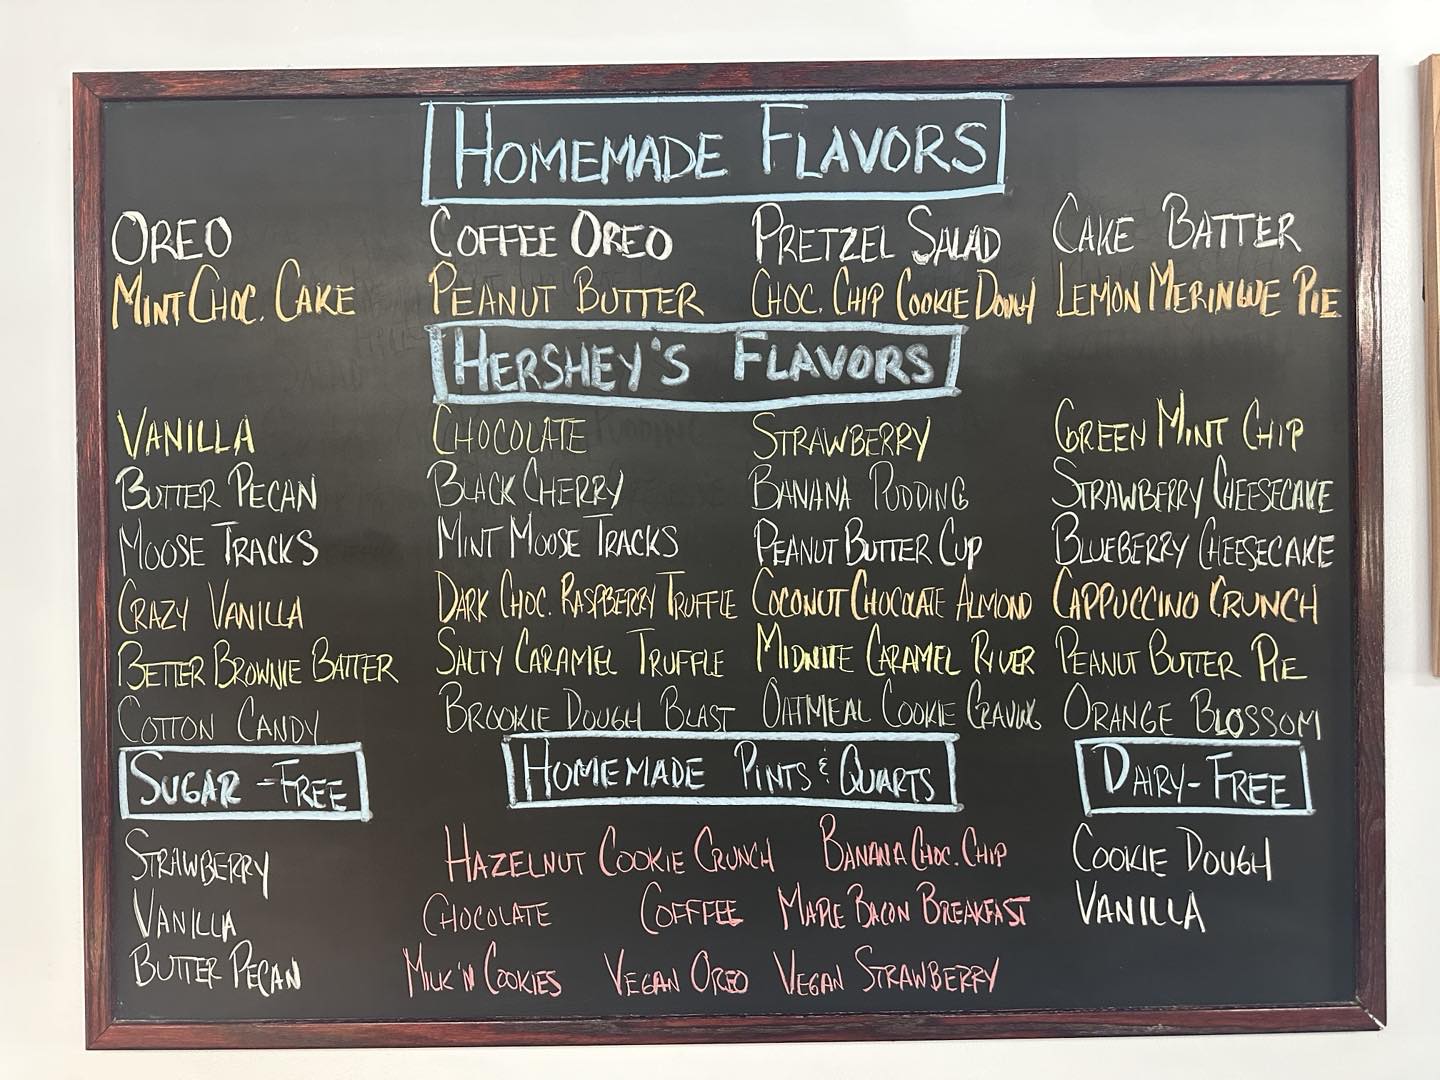 HOMEMADE FLAVORS
OREO COFFEE OREO PRETZEL SALAD CAKE BATTER
MINT CHOC. CAKE PEANUT BUTTER CHOC. CHIP COOKIE DOUGH LEMON MERINGUE PIE
HERSHEY'S FLAVORS
VANILLA CHOCOLATE STRAWBERRY GREEN MINT CHIP
BUTTER PECAN BLACK CHERRY BANANA PUDDING STRAWBERRY CHEESECAKE
MOOSE TRACKS MINT MOOSE TRACKS PEANUT BUTTER CUP BLUEBERRY CHEESECAKE
CRAZY VANILLA DARK CHOC. RASPBERRY TRUFFLE COCONUT CHOCOLATE ALMOND CAPPUCCINO CRUNCH
BETTER BROWNIE BATTER SALTY CARAMEL TRUFFLE MIDNITE CARAMEL RIVER PEANUT BUTTER PIE
COTTON CANDY BROOKIE DOUGH BLAST OATMEAL COOKIE CRAVING ORANGE BLOSSOM
SUGAR-FREE HOMEMADE PINTS & QUARTS DAIRY-FREE
STRAWBERRY HAZELNUT COOKIE CRUNCH BANANA CHOC. CHIP COOKIE DOUGH
VANILLA CHOCOLATE COFFFEE MAPLE BACON BREAKFAST VANILLA
BUTTER PECAN MILK 'N COOKIES VEGAN OREO VEGAN STRAWBERRY